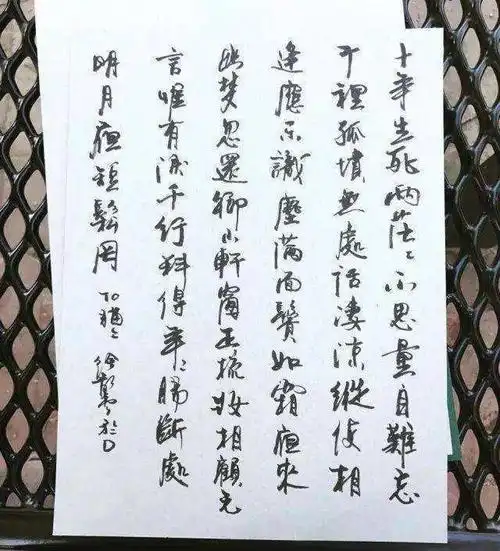 十年生死兩茫〻不思量自難忘
千裡孤墳無處話凄涼縱使相
逢應不識塵滿面鬢如霜夜來
幽梦忽還鄉小軒窗正梳妝相顧无
言唯有淚千行料得年〻腸斷處
明月夜短鬆岡 TO 貓〻